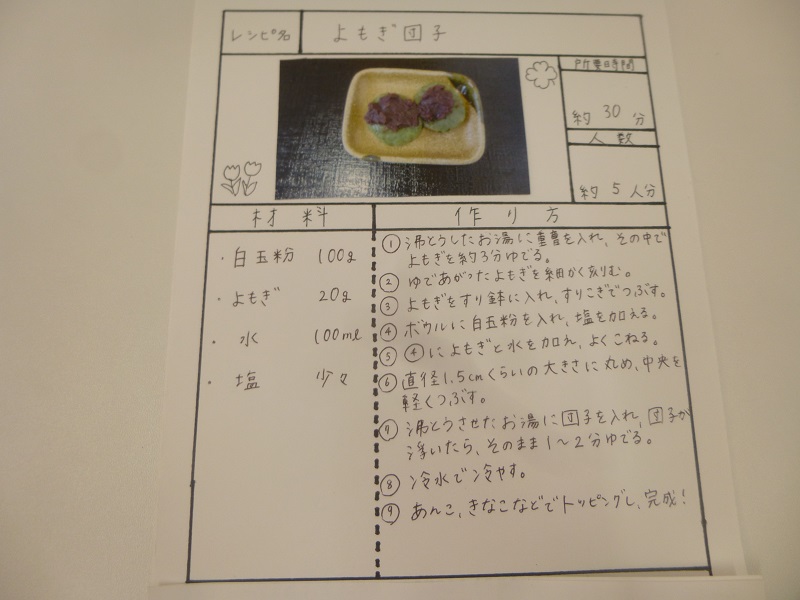 レシピ名
よもぎ団子
所要時間
約 30 分
人数
約 5 人分
材料
・白玉粉 100g
・よもぎ 20g
・水 100ml
・塩 少々
作り方
① 沸とうしたお湯に重曹を入れ、その中で
よもぎを約3分ゆでる。
② ゆであがったよもぎを細かく刻む。
③ よもぎをすり鉢に入れ、すりこぎでつぶす。
④ ボウルに白玉粉を入れ、塩を加える。
⑤ ④によもぎと水を加え、よくこねる。
⑥ 直径1.5cmくらいの大きさに丸め、中央を
軽くつぶす。
⑦ 沸とうさせたお湯に団子を入れ、団子が
浮いたら、そのまま1〜2分ゆでる。
⑧ 冷水で冷やす。
⑨ あんこ、きなこなどでトッピングし、完成!